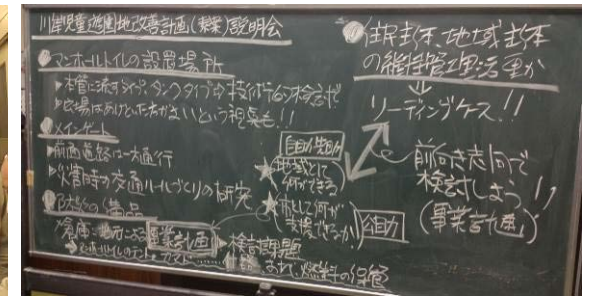 川岸児童遊園地改善計画(素案)説明会
マンホールトイレの設置場所
▶本管に流すタイプ、タンクタイプ⇨技術的な検討で
▶広場はあけた方がいいという視点も!!
メインゲート
▶前面道路は一方通行
▶災害時の交通ルールづくりの研究
防災の備品
倉庫:地元による事業計画▶検討課題
トイレのテント
燃料の保管
自助共助
★地域として何ができる
★村として何が支援できるか
公助
住民主体、地域主体
の維持管理活動
⇓
リーディングケース!!
前向き志向で
検討しよう!!
(事業計画)